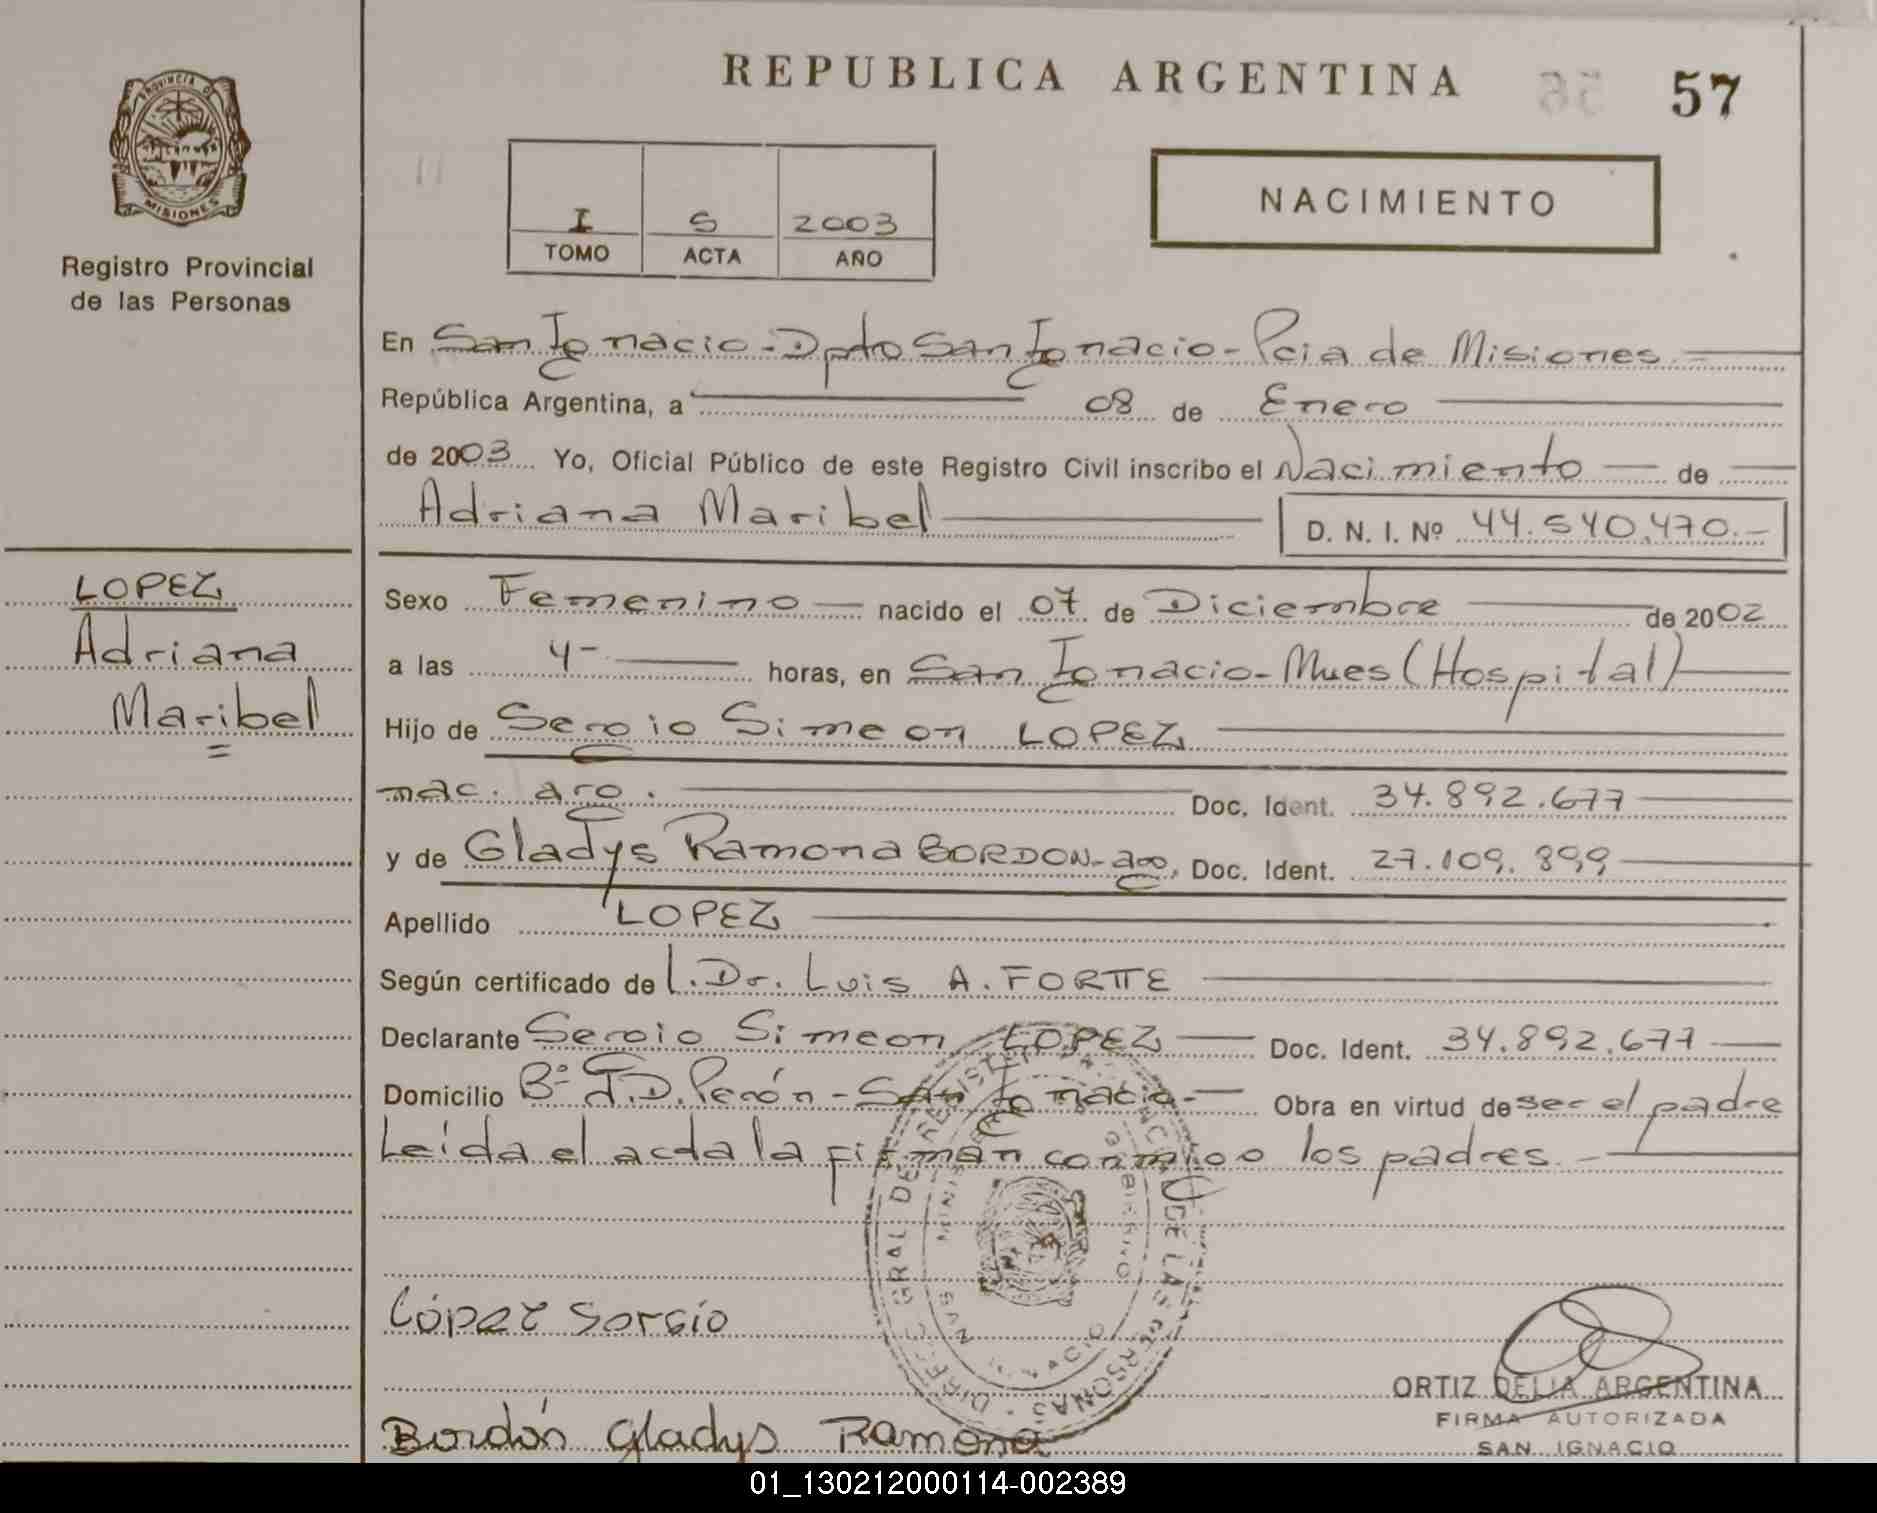 REPUBLICA ARGENTINA
57
PROVINCIA DE
MISIONES
Registro Provincial
de las Personas
I 5 2003
TOMO ACTA AÑO
NACIMIENTO
En San Ignacio - Dpto San Ignacio - Pcia de Misiones
República Argentina, a 08 de Enero
de 2003 Yo, Oficial Público de este Registro Civil inscribo el Nacimiento de
Adriana Maribel D. N. I. Nº 44.540.470.-
LOPEZ
Adriana
Maribel
Sexo Femenino nacido el 07 de Diciembre de 2002
a las 4- horas, en San Ignacio - Mnes (Hospital)
Hijo de Sergio Simeon LOPEZ
nac. arg. Doc. Ident. 34.892.677
y de Gladys Ramona BORDON - arg. Doc. Ident. 27.109.899
Apellido LOPEZ
Según certificado de l. Dr. Luis A. FORTTE
Declarante Sergio Simeon LOPEZ Doc. Ident. 34.892.677
Domicilio Bº J.D. Perón - San Ignacio.- Obra en virtud de ser el padre
Leída el acta la firman conmigo los padres.-
DIREC. GRAL DEL REGISTRO PROVINCIAL DE LAS PERSONAS
SAN IGNACIO
López Sergio
ORTIZ DELIA ARGENTINA
FIRMA AUTORIZADA
SAN IGNACIO
Bordón Gladys Ramona
01_130212000114-002389